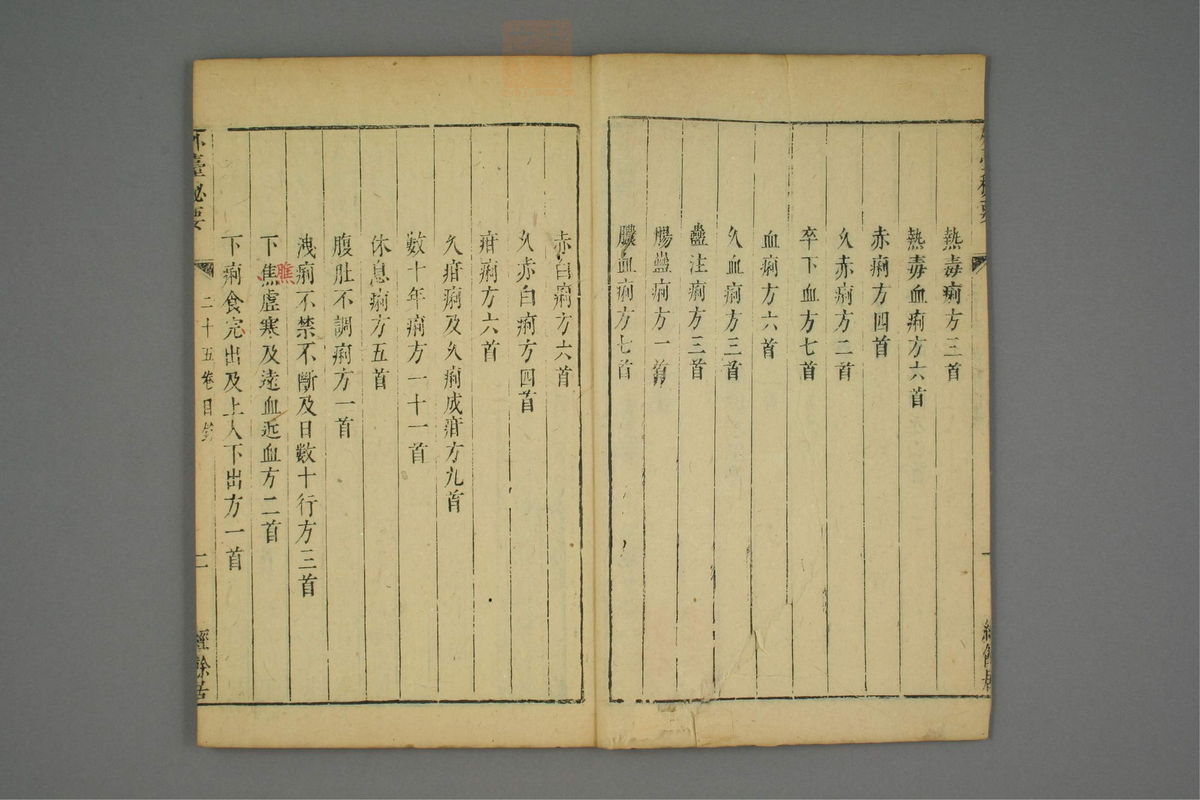 熱毒痢方三首
熱毒血痢方六首
赤痢方四首
久赤痢方二首
卒下血方七首
血痢方六首
久血痢方三首
蠱注痢方三首
腸蠱痢方一首
膿血痢方七首
赤白痢方六首
久赤白痢方四首
疳痢方六首
久疳痢及久痢成疳方九首
數十年痢方一十一首
休息痢方五首
腹肚不調痢方一首
洩痢不禁不斷及日數十行方三首
下焦虛寒及遠血近血方二首
膲
下痢食完出及上入下出方一首
外臺秘要
二十五卷目錄
二
經餘居